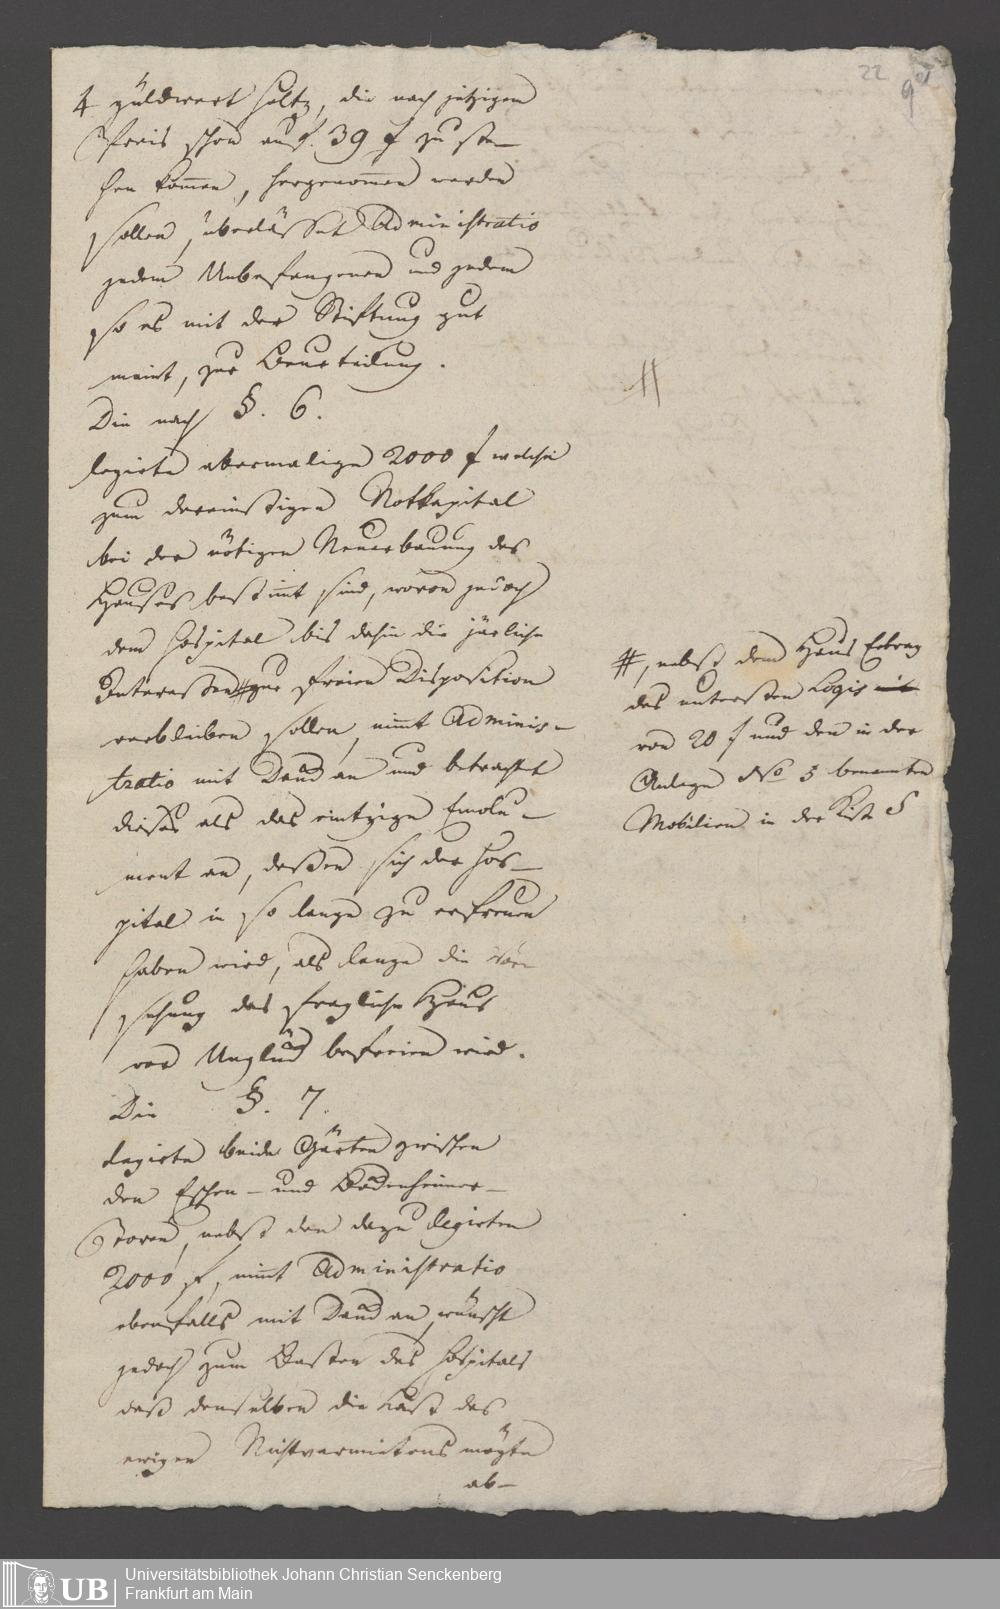 22
9
4 güldwert Holtz, die nach jetzigem
Preis schon auf 39 f zu ste-
hen kommen, hergenommen werden
sollen, überlässet Administratio
jedem Unbefangenen und jedem
so es mit der Stiftung gut
meint, zur Beurteilung.
Die nach §. 6.
legirte abermalige 2000 f welche
zum dereinstigen Notkapital
bei der nötigen Neuerbauung des
Hauses bestimt sind, wovon jedoch
dem Hospital bis dahin die järliche
Interessen # zur freien Disposition
verbleiben sollen, nimt Adminis-
tratio mit Danck an und betrachtet
dieses als das eintzige Emolu-
ment an, dessen sich der Hos-
pital in so lange zu erfreuen
haben wird, als lange die Vor-
sehung das fragliche Haus
vor Unglück befreien wird.
Die §. 7.
legirte beide Gärten zwischen
den Eschen- und Bockenheimer-
Toren, nebst den dazu legirten
2000 f, nimt Administratio
ebenfalls mit Danck an, wünscht
jedoch zum Besten des Hospitals
daß denselben die Last des
ewigen Nichtvermietens mögte
ab-
#, nebst dem Haus Ertrag
des untersten Logis
von 20 f und den in der
Anlage No 3 benanten
Mobilien in der Kist
Universitätsbibliothek Johann Christian Senckenberg
Frankfurt am Main
UB